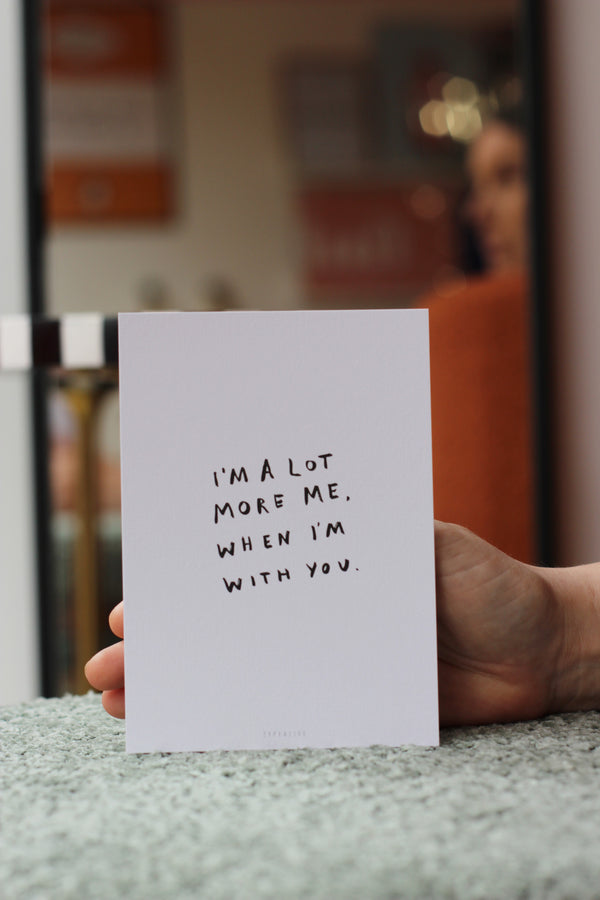 I'M A LOT
MORE ME,
WHEN I'M
WITH YOU.